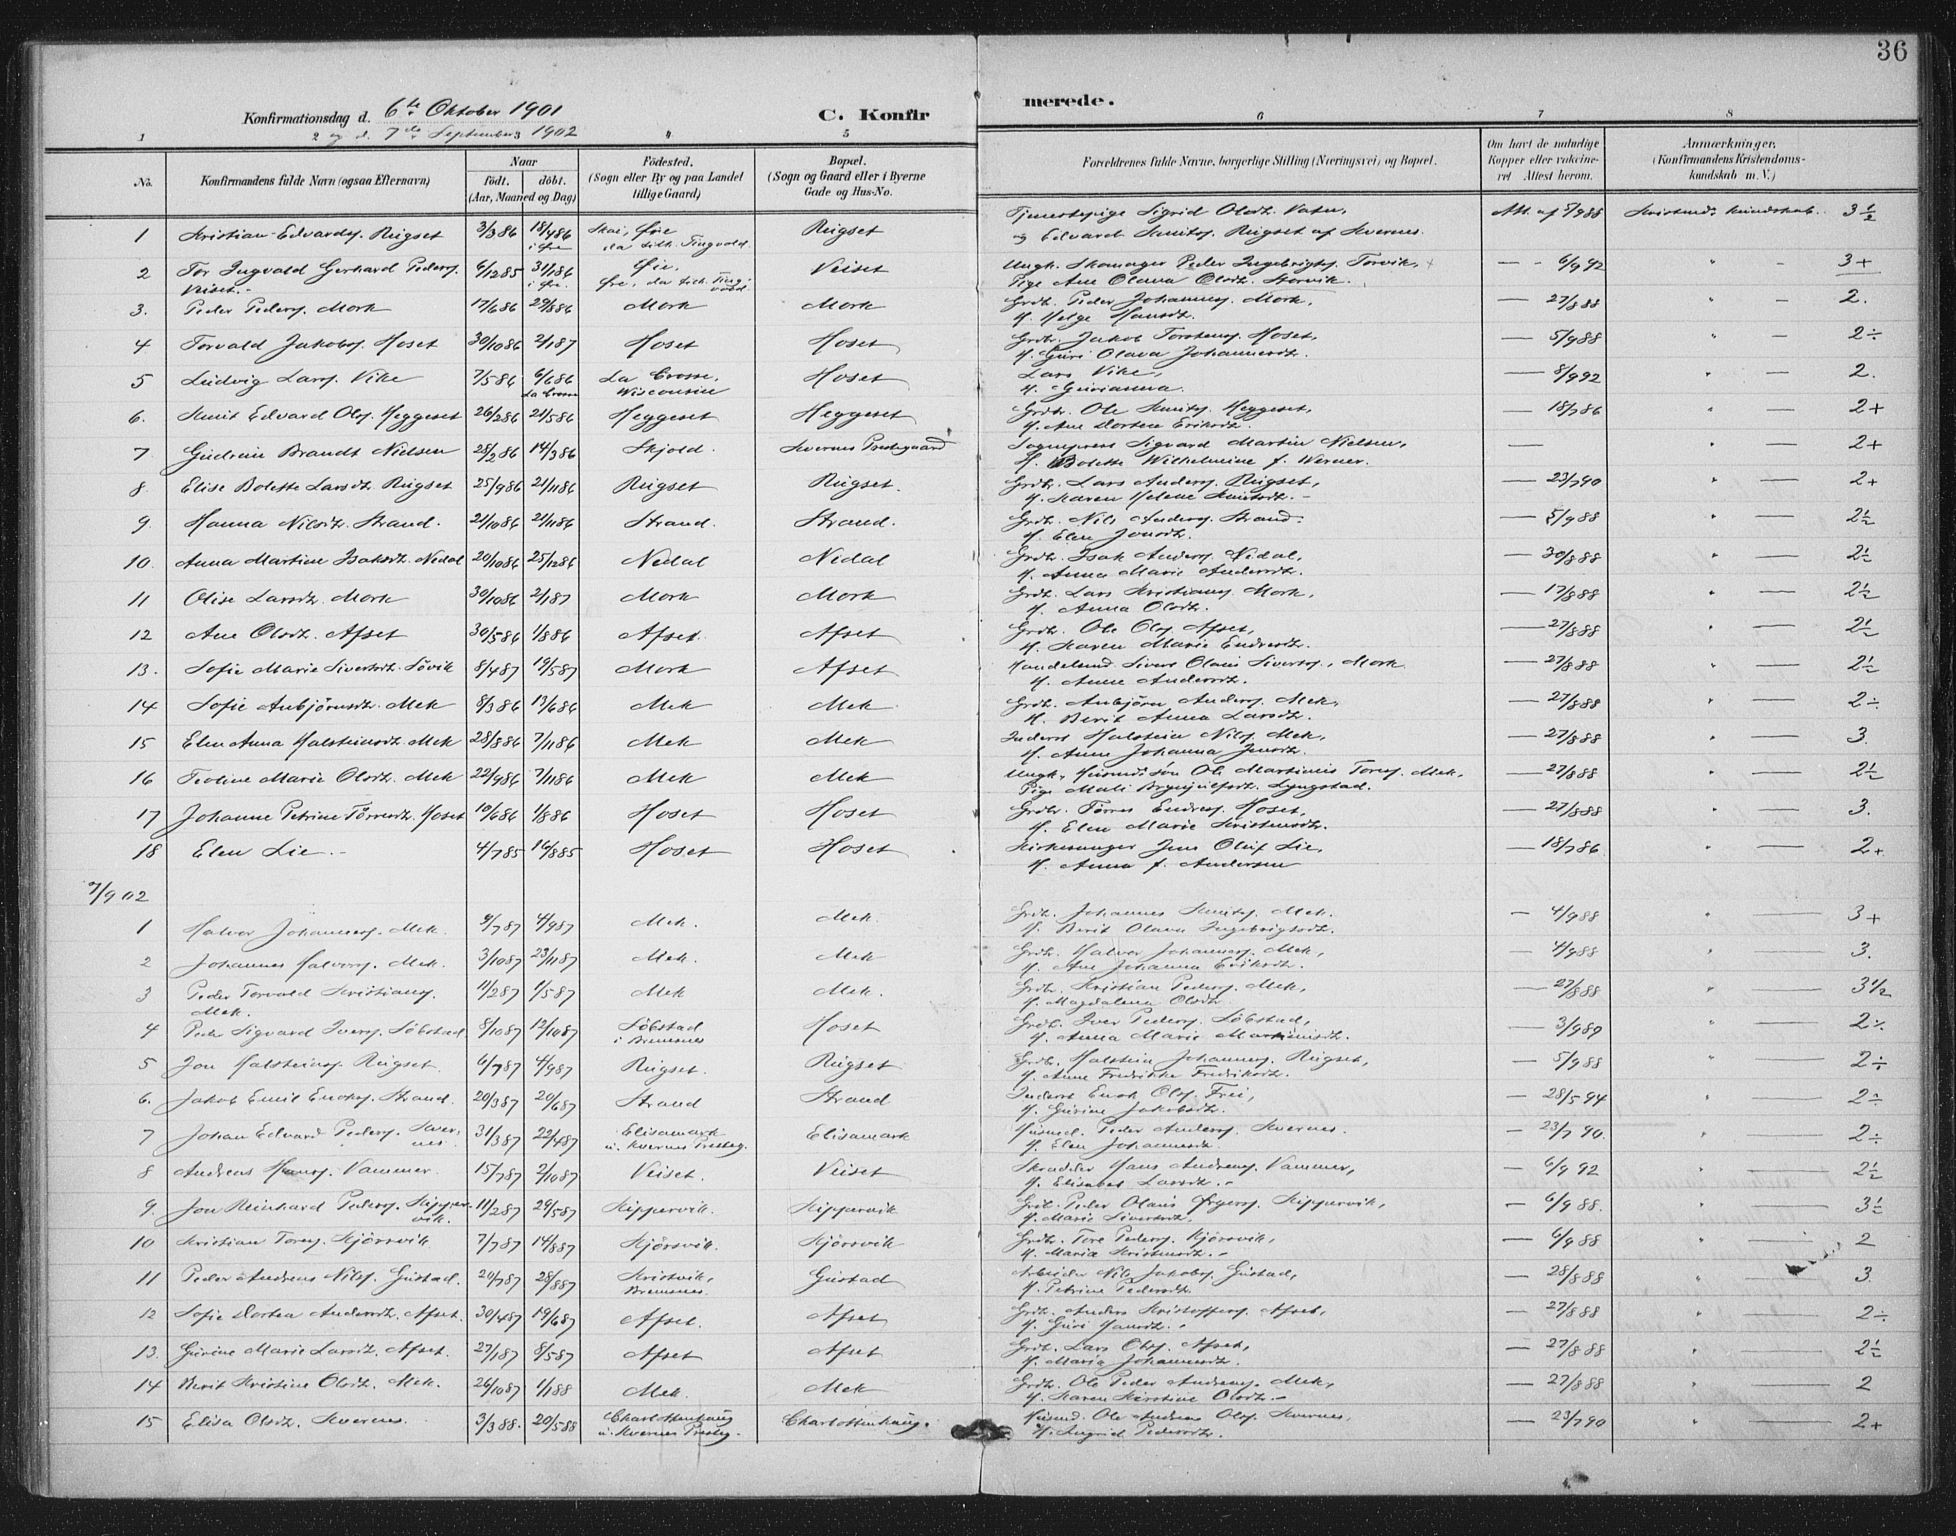 36
Konfirmationsdag d. 6te Oktober 1901
2 og d. 7de September 1902
C. Konfirmerede.
1 2 3 4 5 6 7 8
No. Konfirmandens fulde Navn (ogsaa Efternavn) Naar født. døbt. (Aar, Maaned og Dag) Fødested. (Sogn eller By og paa Landet tillige Gaard) Bopæl. (Sogn og Gaard eller i Byerne Gade og Hus-No. Forældrenes fulde Navne, borgerlige Stilling (Næringsvei) og Bopæl. Om havt de naturlige Kopper eller vakcineret Attest herom. Anmærkninger, (Konfirmandens Kristendomskundskab m. V.)
1 Kristian Edvards. Rugset 3/3 86 18/4 86 i Øre Øie da tilh. Tingvold Rugset Tjenestepige Sigrid Olsdt. Vatn, og Edvard Knuts. Rugset af Kvernes. Att. af 5/9 88 Kristends. kundskab. 3 1/2
2 Tor Ingvald Gerhard Peders. Veiset. 6/12 85 31/1 86 i Øre. Øie, Øre, da tilh. Tingvold Veiset Ungk. Skomager Peder Ingebrigts. Torvik, Pige Ane Olava Olsdt. Storvik. — 6/9 92 " — 3+
3. Peder Peders. Mork 17/6 86 29/8 86 Mork Mork Grdbr. Peder Johannes. Mork, H. Helge Hansdt. — 27/8 88 " — 2.
4 Torvald Jakobs. Hoset 30/10 86 2/1 87 Hoset Hoset Grdbr. Jakob Torstens. Hoset, H. Guri Olava Johannesdt. — 5/9 88 " — 2÷
5 Ludvig Lars. Vike 7/5 86 6/6 86 La Crosse La Crosse, Wisconsin Hoset Lars Vike, H. Gurianna — 8/9 92 " — 2.
6. Knut Edvard Ols. Heggeset 26/2 86 21/5 86 Heggeset Heggeset Grdbr. Ole Knuts. Heggeset, H. Ane Dorten Eriksdt. — 18/7 86 " — 2+
7 Gudrun Brandt Nielsen 28/2 86 14/3 86 Skjold. Kvernes Prestegaard Sogneprest Sigvard Martin Nielsen, H. Bolette Wilhelmine f. Werner. — " — 2+
8. Elise Bolette Larsdt. Rugset 25/9 86 21/11 86 Rugset Rugset. Grdbr. Lars Anders. Rugset, H. Karen Helene Knutsdt. — 23/7 90 " — 2+
9. Hanna Nilsdt. Strand. 21/10 86 21/11 86 Strand. Strand. Grdbr. Nils Anders. Strand. H. Elen Jonsdt. — 5/9 88 " — 2 1/2
10. Anna Martine Isaksdt. Nedal 20/10 86 25/12 86 Nedal Nedal Grdbr. Isak Anders. Nedal, H. Anna Marie Andersdt. — 30/8 88 " — 2 1/2
11 Olise Larsdt. Mork 30/10 86 2/1 87 Mork Mork Grdbr. Lars Kristians. Mork, H. Anna Olsdt. — 17/8 88 " — 2 1/2
12 Ane Olsdt. Afset 30/5 86 1/8 86 Afset. Afset Grdbr. Ole Ols. Afset, H. Karen Marie Endresdt. — 27/8 88 " — 2 1/2
13. Sofie Marie Sivertsdt. Søvik 8/4 87 19/5 87 Mork Afset Handelsmd. Sivert Olaus Siverts., Mork. H. Anne Andersdt. — 27/8 88 " — 2 1/2
14 Sofie Anbjørnsdt. Mek 8/3 86 13/6 86 Mek Mek Grdbr. Anbjørn Anders. Mek, H. Berit Anna Larsdt. — 27/8 88 " — 2÷
15 Elen Anna Halsteinsdt. Mek 28/8 86 7/11 86 Mek Mek Inderst Halstein Nils. Mek, H. Anne Johanna Jensdt. — 27/8 88 " — 3.
16 Teoline Marie Olsdt. Mek 22/9 86 7/11 86 Mek Mek Ungk. Husmds. søn Ole Martinus Tores. Mek, Pige Mali Brynjulfsdt. Lyngstad. — 27/8 88 " — 2 1/2
17 Johanne Petrine Tørresdt. Hoset 19/6 86 1/8 86 Hoset Hoset Grdbr. Tørres Endres. Hoset, H. Elen Marie Kristensdt. — 27/8 88 " — 3.
18 Elen Lie. 4/7 85 16/8 85 Hoset Hoset Kirkesanger Jens Oluf Lie, H. Anna f. Andersen — 18/7 86 " — 2+
7/9 02
1 Halvor Johannes. Mek. 9/7 87 4/9 87 Mek. Mek. Grdbr. Johannes Knuts. Mek. H. Berit Olava Ingebrigtsdt. — 4/9 88 " — 3+
2 Johannes Halvors. Mek. 3/10 87 23/11 87 Mek. Mek Grdbr. Halvor Johannes. Mek, H. Ane Johanna Eriksdt. — 4/9 88 " — 3.
3 Peder Torvald Kristians. Mek. 11/2 87 1/5 87 Mek Mek. Grdbr. Kristian Peders. Mek, H. Magdalena Olsdt. — 27/8 88 " — 3 1/2
4 Peder Sigvard Ivers. Løbstad 8/10 87 12/10 87 Løbstad i Bremsnes Hoset Grdbr. Iver Peders. Løbstad, H. Anna Marie Martinusdt. — 3/9 89 " — 2÷
5 Jon Halsteins. Rugset 6/7 87 4/9 87 Rugset. Rugset Grdbr. Halstein Johannes. Rugset, H. Anne Fredrikke Fredriksdt. — 5/9 88 " — 2÷
6. Jakob Emil Enoks. Strand. 20/3 87 20/6 87 Strand Strand Inderst Enok Ols. Frei, H. Gurine Jakobsdt. — 28/5 94 " — 2÷
7 Johan Edvard Peders. Kvernes 31/3 87 22/4 87 Elisamark u. Kvernes Presteg. Elisamark Husmd. Peder Anders. Kvernes. H. Elen Johannesdt. — 23/7 90. " — 2÷
8 Andreas Hans. Vammer. 15/7 87 2/10 87 Veiset. Veiset Skrædder Hans Andreas. Vammer, H. Elisabet Larsdt. — 6/9 92 " — 2 1/2
9. Jon Reinhard Peders. Kippervik. 11/2 87 29/5 87 Kippervik. Kippervik Grdbr. Peder Olaus Ørgers. Kippervik, H. Marie Sivertsdt. — 6/9 88. " — 3 1/2
10 Kristian Tores. Kjørsvik 7/7 87 14/8 87 Kjørsvik. Kjørsvik Grdbr. Tore Peders. Kjørsvik, H. Maria Kristensdt. — 6/9 88 " — 2
11 Peder Andreas Nils. Gustad. 20/7 87 28/8 87 Kristvik, Bremsnes. Gustad Arbeider Nils Jakobs. Gustad, H. Petrine Pedersdt. — 28/8 88 " — 3.
12 Sofie Dorten Andersdt. Afset. 30/4 87 19/6 87 Afset. Afset Grdbr. Anders Kristoffers. Afset, H. Guri Hansdt. — 27/8 88 " — 2÷
13. Gurine Marie Larsdt. Afset. 27/1 87 8/5 87 Afset Afset Grdbr. Lars Ols. Afset, H. Maria Johannesdt. — 27/8 88 " — 2 1/2
14 Berit Kristine Olsdt. Mek. 26/10 87 1/1 88 Mek. Mek Grdbr. Ole Peder Andreas. Mek, H. Karen Kirstine Olsdt. — 27/8 88 " — 2
15 Elisa Olsdt. Kvernes. 3/3 88. 20/5 88 Charlottenhaug u. Kvernes Presteg. Charlottenhaug. Husmd. Ole Andreas Ols. Kvernes, H. Ingrid Pedersdt. — 23/7 90 " — 2+